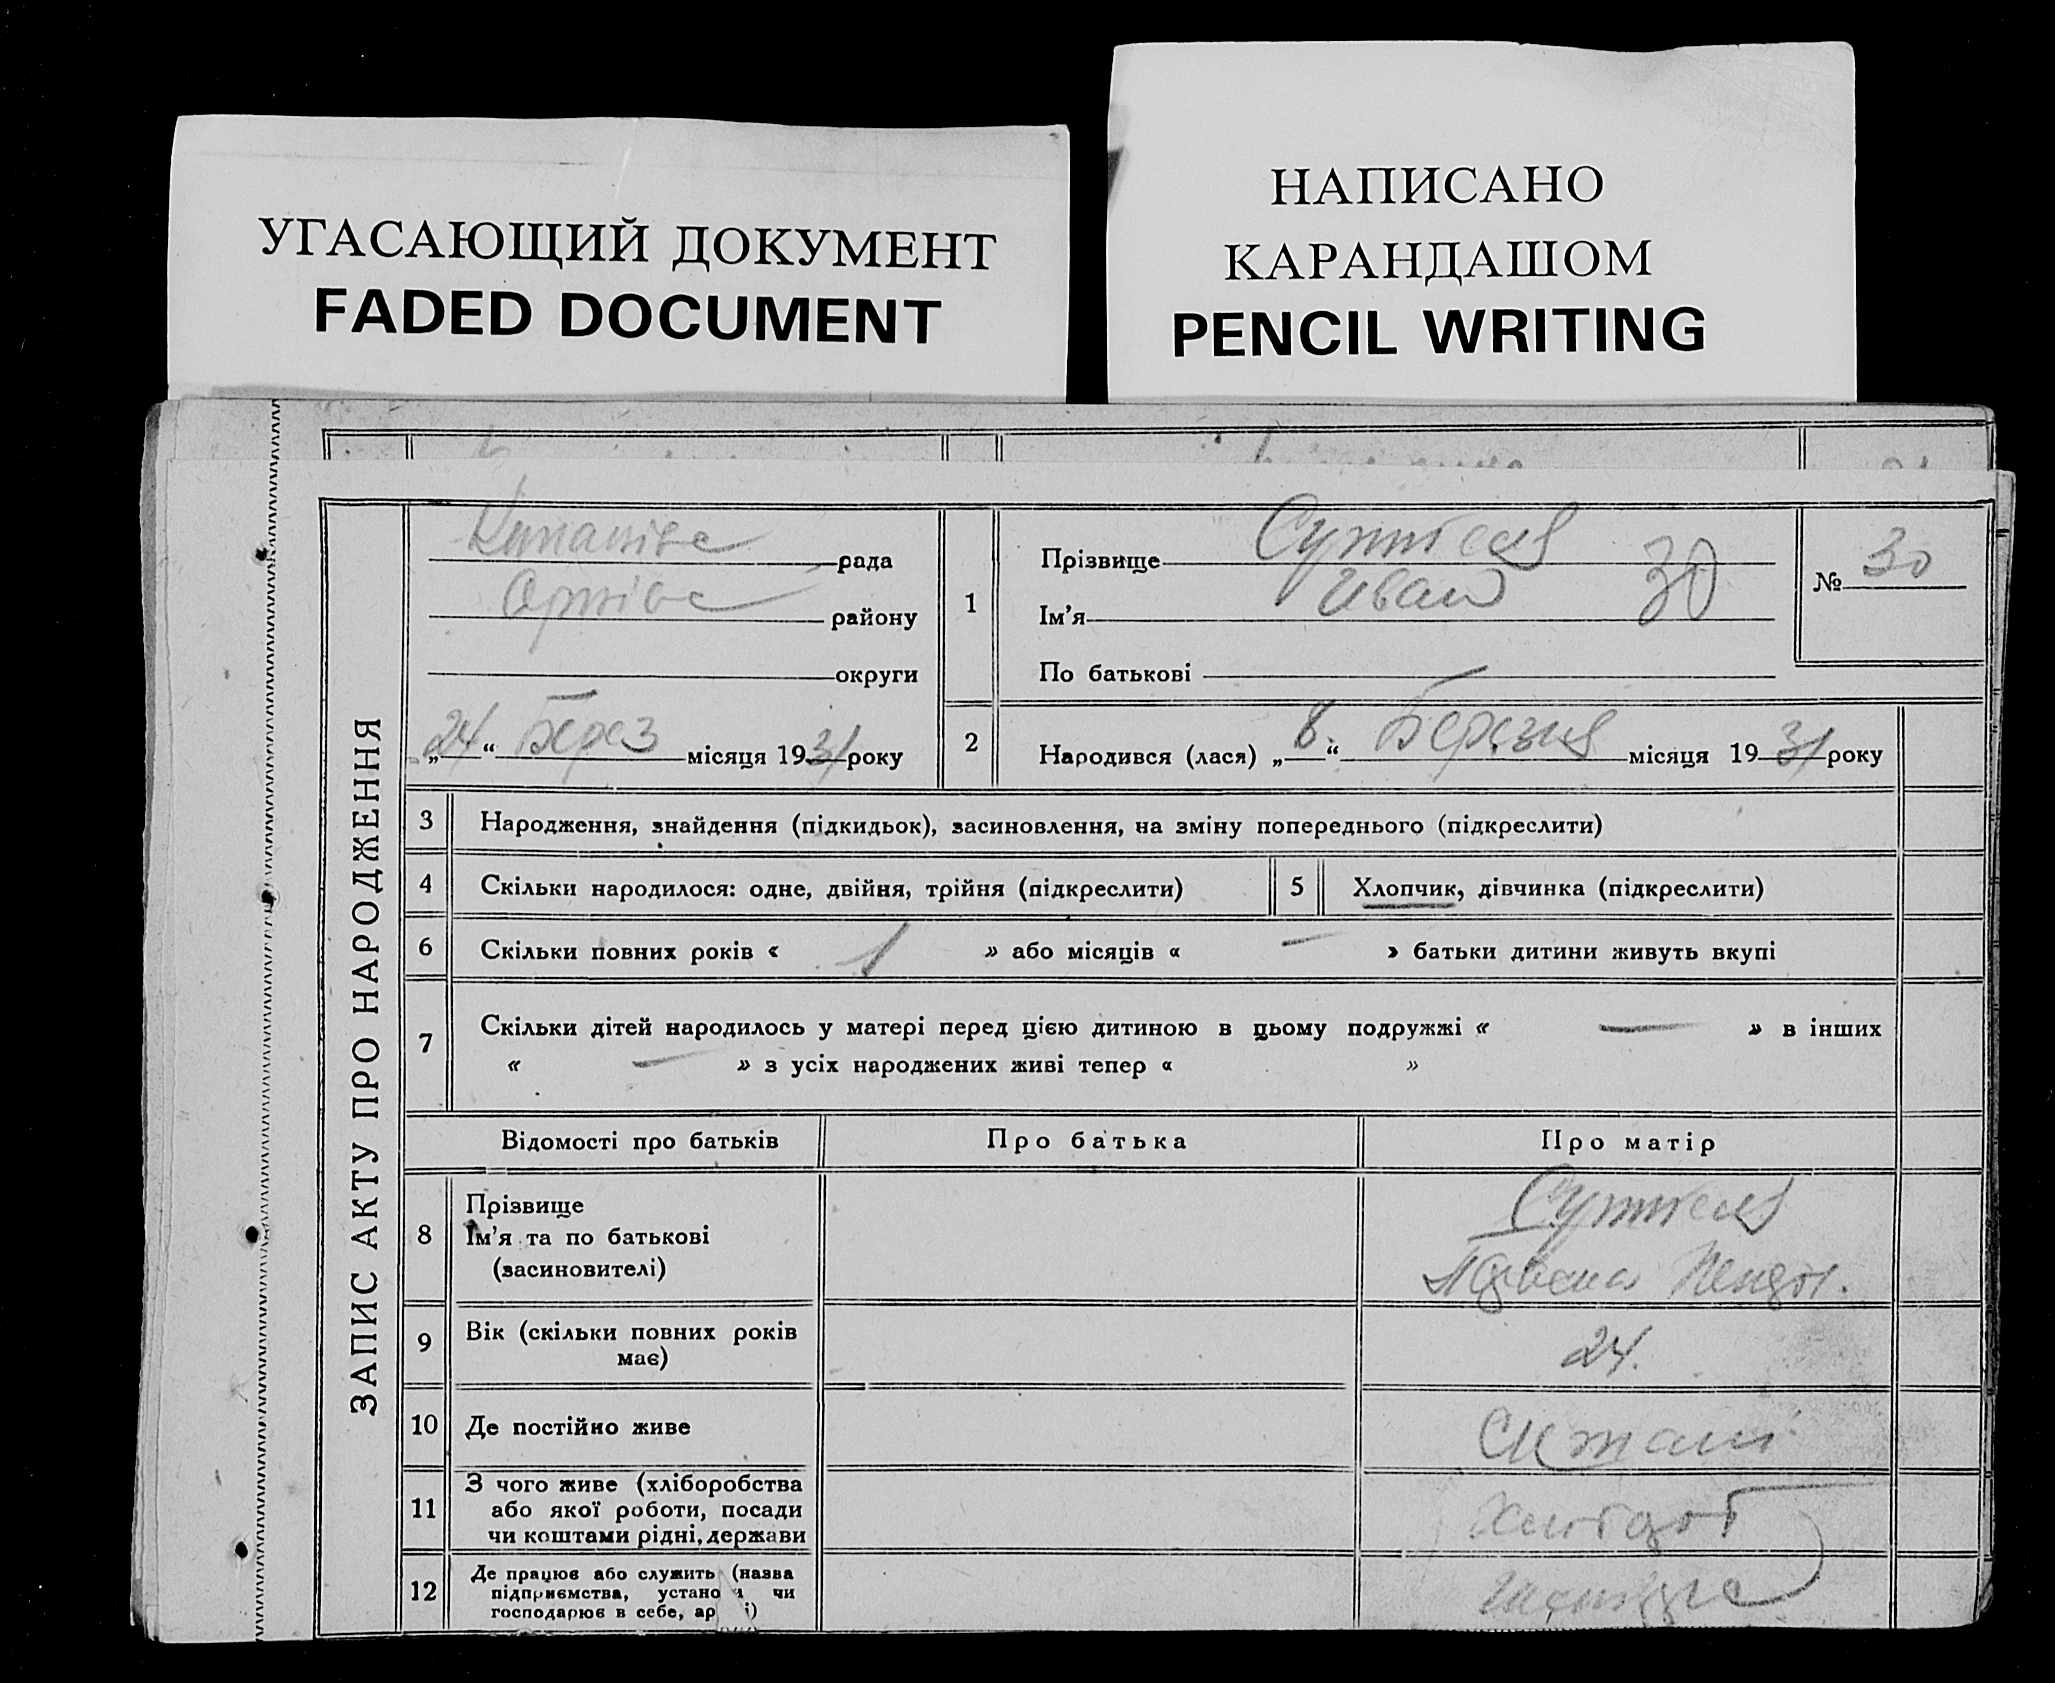 УГАСАЮЩИЙ ДОКУМЕНТ
FADED DOCUMENT
НАПИСАНО
КАРАНДАШОМ
PENCIL WRITING
ЗАПИС АКТУ ПРО НАРОДЖЕННЯ
рада
району
округи
„24“ Берез місяця 1931 року
1
Прізвище
Ім’я Иван 30
По батькові
№ 30
2 Народився (лася) „8.“ Березня місяця 1931 року
3 Народження, знайдення (підкидьок), засиновлення, на зміну попереднього (підкреслити)
4 Скільки народилося: одне, двійня, трійня (підкреслити)
5 Хлопчик, дівчинка (підкреслити)
6 Скільки повних років « 1 » або місяців « — » батьки дитини живуть вкупі
7 Скільки дітей народилось у матері перед цією дитиною в цьому подружжі « — » в інших
« — » з усіх народжених живі тепер « »
Відомості про батьків Про батька Про матір
8 Прізвище
Ім’я та по батькові
(засиновителі)
9 Вік (скільки повних років
має)
24.
10 Де постійно живе
11 З чого живе (хліборобства
або якої роботи, посади
чи коштами рідні, держави
12 Де працює або служить (назва
підприємства, устано и чи
господарює в себе, ар і)